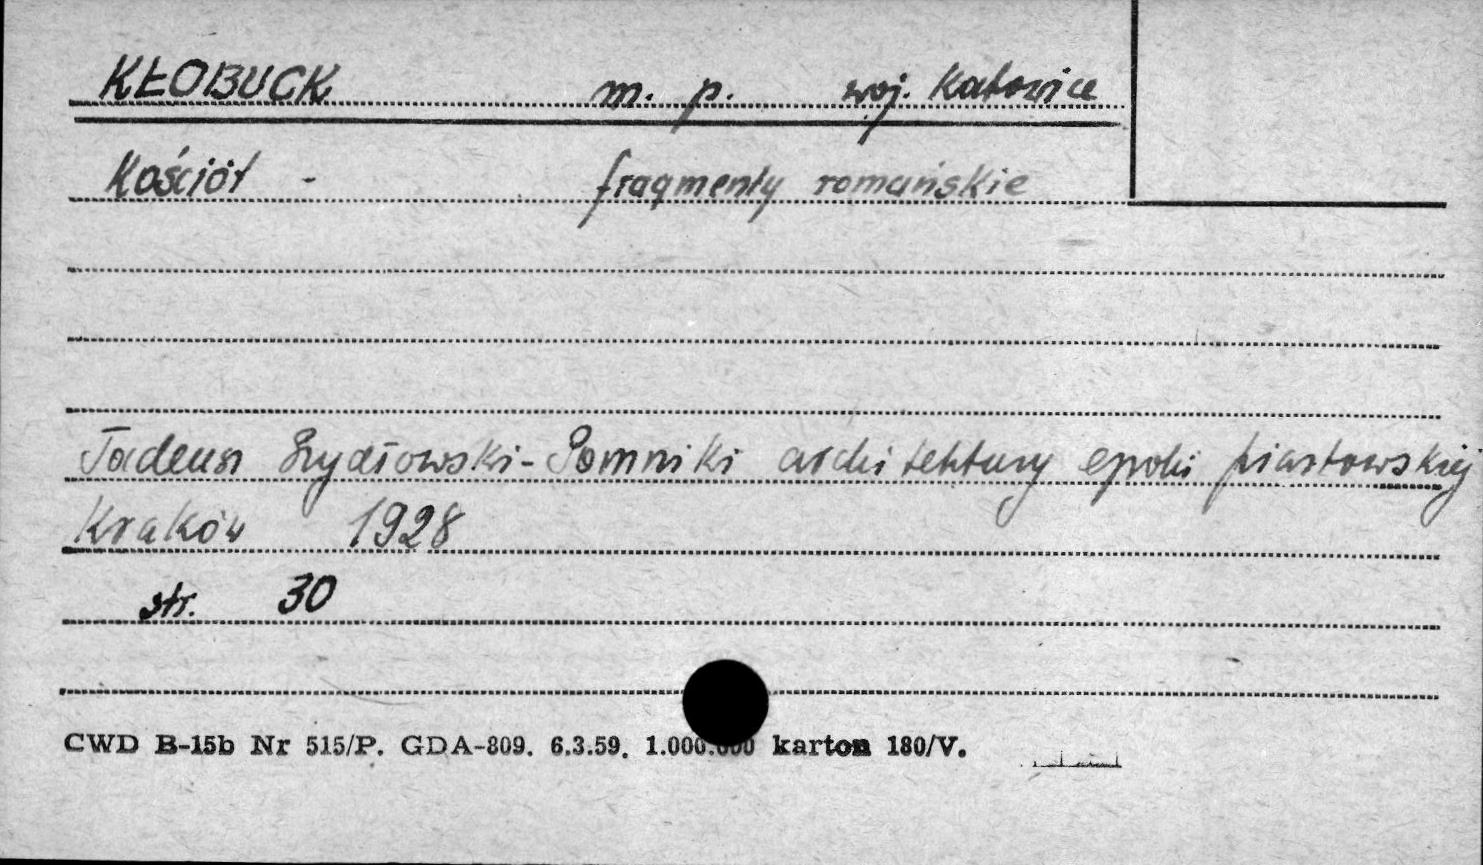 KŁOBUCK m. p. woj. Katowice
Kościół - fragmenty romańskie
Tadeusz Szydłowski - Pomniki architektury epoki piastowskiej
Kraków 1928
str. 30
CWD B-15b Nr 515/P. GDA-809. 6.3.59. 1.000.000 karton 180/V.